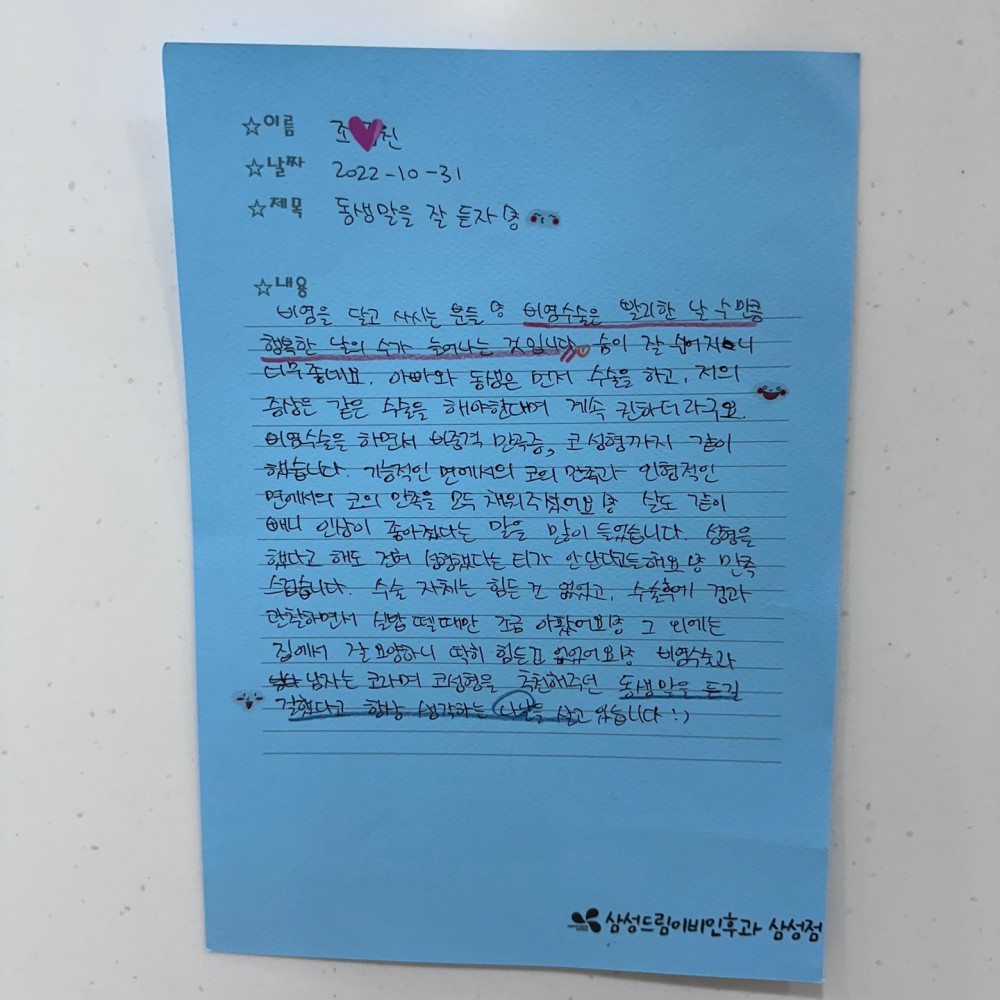 ☆이름 조 진
☆날짜 2022-10-31
☆제목 동생말을 잘 듣자
☆내용
비염을 달고 사시는 분들 비염수술은 빨리한 날 수만큼
행복한 날의 수가 늘어나는 것입니다 숨이 잘 쉬어지니
너무좋네요. 아빠와 동생은 먼저 수술을 하고, 저의
증상은 같은 수술을 해야한대며 계속 권하더라구요.
비염수술을 하면서 비중격 만곡증, 코 성형까지 같이
했습니다. 기능적인 면에서의 코의 만족과 외형적인
면에서의 코의 만족을 모두 채워주셨어요 살도 같이
빼니 인상이 좋아졌다는 말을 많이 들었습니다. 성형을
했다고 해도 전혀 성형했다는 티가 안난다고들해요 만족
스럽습니다. 수술 자체는 힘든건 없었고, 수술후에 경과
관찰하면서 실밥 뗄때만 조금 아팠어요 그 외에는
집에서 잘 요양하니 딱히 힘든건 없었어요 비염수술과
남자는 코라며 코성형을 추천해주던 동생말을 듣길
잘했다고 항상 생각하는 나날을 살고 있습니다 :)
삼성드림이비인후과 삼성점